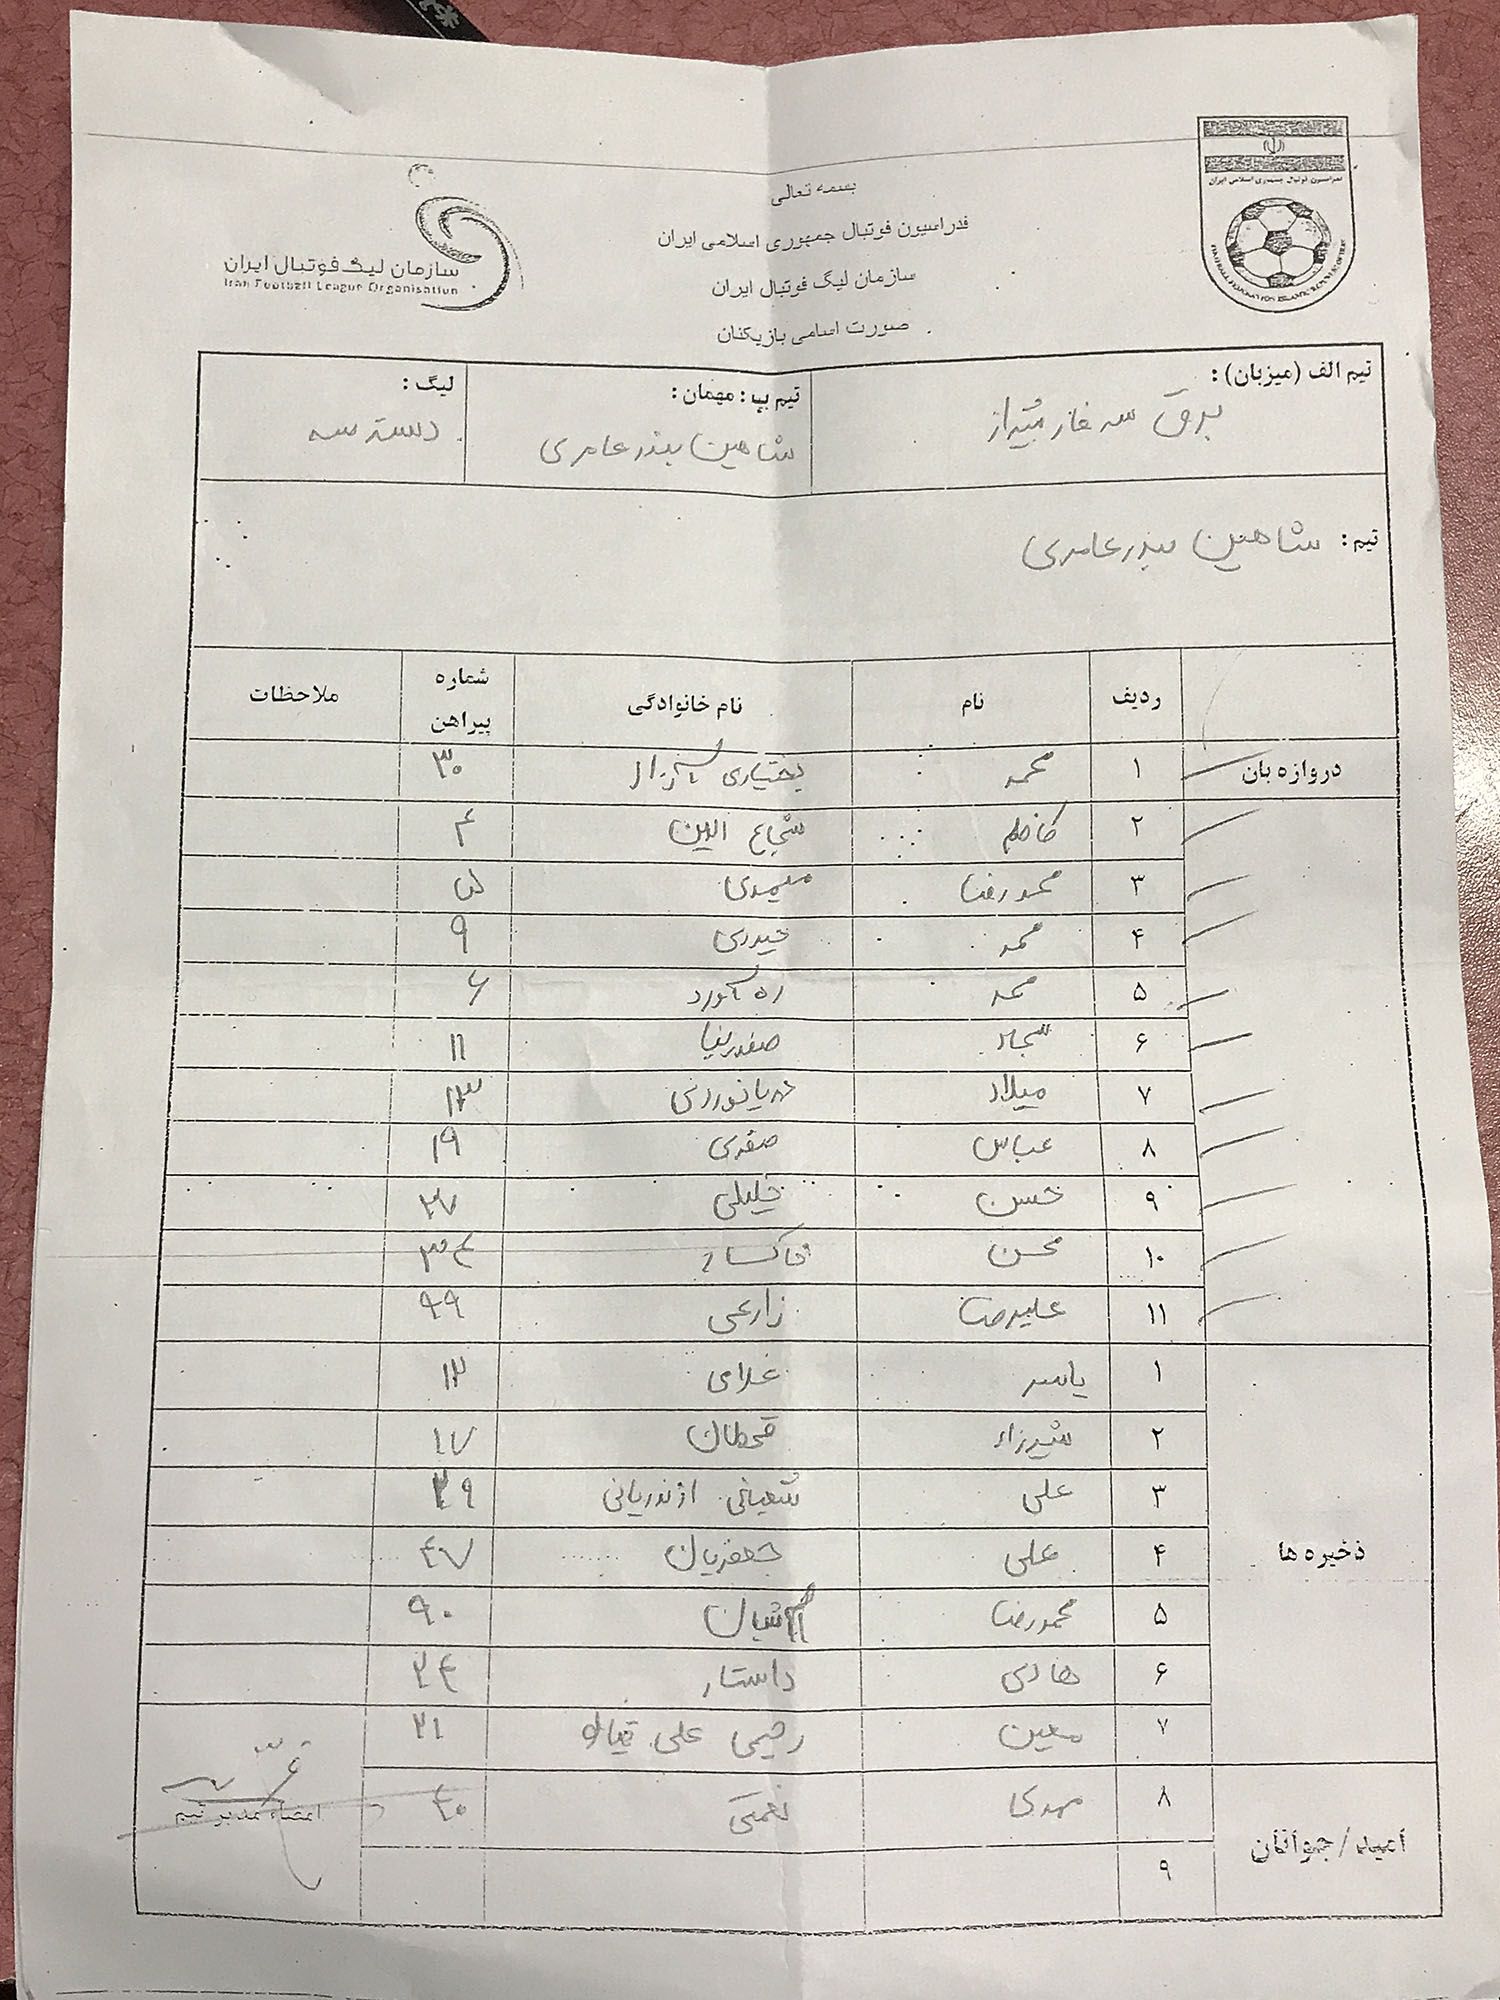 بسمه تعالی
فدراسیون فوتبال جمهوری اسلامی ایران
سازمان لیگ فوتبال ایران
صورت اسامی بازیکنان
فدراسیون فوتبال جمهوری اسلامی ایران
سازمان لیگ فوتبال ایران
Iran Football League Organisation
تیم الف (میزبان): برق سه فاز شیراز
تیم ب: مهمان: شاهین بندر عامری
لیگ: دسته سه
تیم: شاهین بندر عامری
ردیف نام نام خانوادگی شماره پیراهن ملاحظات
دروازه بان ۱ محمد بختیاری ۳۰
۲ کاظم شجاع الدین ۴
۳ محمدرضا میمدی ۵
۴ محمد حیدری ۹
۵ محمد ره نورد ۶
۶ سجاد صفدرنیا ۱۱
۷ میلاد دریانوردی ۱۳
۸ عباس صفدری ۱۹
۹ حسن خلیلی ۲۷
۱۰ محسن خاکسار ۳۴
۱۱ علیرضا زارعی ۹۹
ذخیره ها
۱ یاسر غلامی ۱۲
۲ شیرزاد قحطان ۱۷
۳ علی شعبانی ازندریانی ۲۹
۴ علی جعفریان ۴۷
۵ محمدرضا ۹۰
۶ هادی داستار ۲۴
۷ معین رحیمی علی ۲۱
امید/جوانان
۸ مهدی نعمتی ۴۰
۹
امضاء مدیر تیم